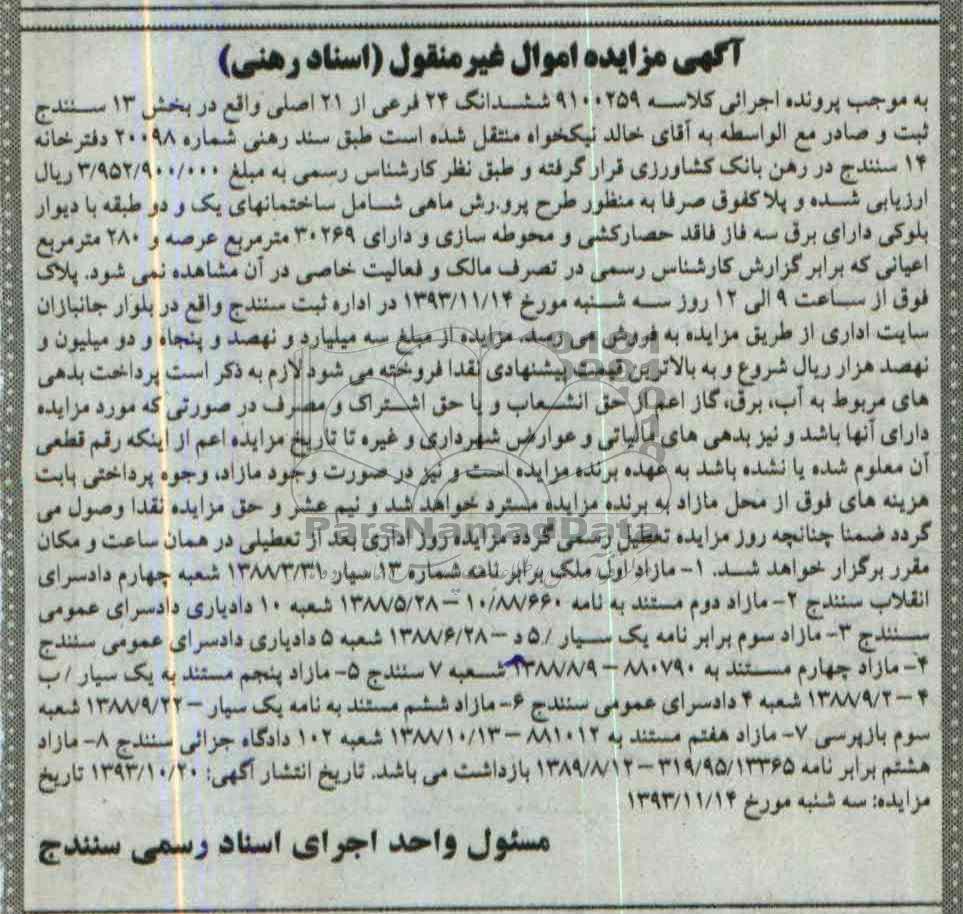 آگهی مزایده اموال غیر منقول (اسناد رهنی)
به موجب پرونده اجرائی کلاسه ۹۱۰۰۲۵۹ ششدانگ ۲۴ فرعی از ۲۱ اصلی واقع در بخش ۱۳ سنندج
ثبت و صادر مع الواسطه به آقای خالد نیکخواه منتقل شده است طبق سند رهنی شماره ۲۰۰۹۸ دفترخانه
۱۴ سنندج در رهن بانک کشاورزی قرار گرفته و طبق نظر کارشناس رسمی به مبلغ ۳/۹۵۲/۹۰۰/۰۰۰ ریال
ارزیابی شده و پلاکفوق صرفا به منظور طرح پرو.رش ماهی شامل ساختمانهای یک و دو طبقه با دیوار
بلوکی دارای برق سه فاز فاقد حصارکشی و محوطه سازی و دارای ۳۰۲۶۹ مترمربع عرصه و ۲۸۰ مترمربع
اعیانی که برابر گزارش کارشناس رسمی در تصرف مالک و فعالیت خاصی در آن مشاهده نمی شود. پلاک
فوق از ساعت ۹ الی ۱۲ روز سه شنبه مورخ ۱۳۹۳/۱۱/۱۴ در اداره ثبت سنندج واقع در بلوار جانبازان
سایت اداری از طریق مزایده به فروش می رسد. مزایده از مبلغ سه میلیارد و نهصد و پنجاه و دو میلیون و
نهصد هزار ریال شروع و به بالاترین قیمت پیشنهادی نقدا فروخته می شود لازم به ذکر است پرداخت بدهی
های مربوط به آب، برق، گاز اعم از حق انشعاب و یا حق اشتراک و مصرف در صورتی که مورد مزایده
دارای آنها باشد و نیز بدهی های مالیاتی و عوارض شهرداری و غیره تا تاریخ مزایده اعم از اینکه رقم قطعی
آن معلوم شده یا نشده باشد به عهده برنده مزایده است و نیز در صورت وجود مازاد، وجوه پرداختی بابت
هزینه های فوق از محل مازاد به برنده مزایده مسترد خواهد شد و نیم عشر و حق مزایده نقدا وصول می
ParsNamadData
گردد ضمنا چنانچه روز مزایده تعطیل رسمی گردد مزایده روز اداری بعد از تعطیلی در همان ساعت و مکان
مقرر برگزار خواهد شد. ۱- مازاد اول ملک برابر نامه شماره ۱۳ سیار ۱۳۸۸/۳/۳۱ شعبه چهارم دادسرای
انقلاب سنندج ۲- مازاد دوم مستند به نامه ۱۰/۸۸/۶۶۰ – ۱۳۸۸/۵/۲۸ شعبه ۱۰ دادیاری دادسرای عمومی
سنندج ۳- مازاد سوم برابر نامه یک سیار / ۵ د – ۱۳۸۸/۶/۲۸ شعبه ۵ دادیاری دادسرای عمومی سنندج
۴- مازاد چهارم مستند به ۸۸۰۷۹۰ – ۱۳۸۸/۸/۹ شعبه ۷ سنندج ۵- مازاد پنجم مستند به یک سیار / ب
۴ – ۱۳۸۸/۹/۲ شعبه ۴ دادسرای عمومی سنندج ۶- مازاد ششم مستند به نامه یک سیار – ۱۳۸۸/۹/۲۲ شعبه
سوم بازپرسی ۷- مازاد هفتم مستند به ۸۸۱۰۱۲ – ۱۳۸۸/۱۰/۱۳ شعبه ۱۰۲ دادگاه جزائی سنندج ۸- مازاد
هشتم برابر نامه ۳۱۹/۹۵/۱۳۳۶۵ – ۱۳۸۹/۸/۱۲ بازداشت می باشد. تاریخ انتشار آگهی: ۱۳۹۳/۱۰/۲۰ تاریخ
مزایده: سه شنبه مورخ ۱۳۹۳/۱۱/۱۴
مسئول واحد اجرای اسناد رسمی سنندج